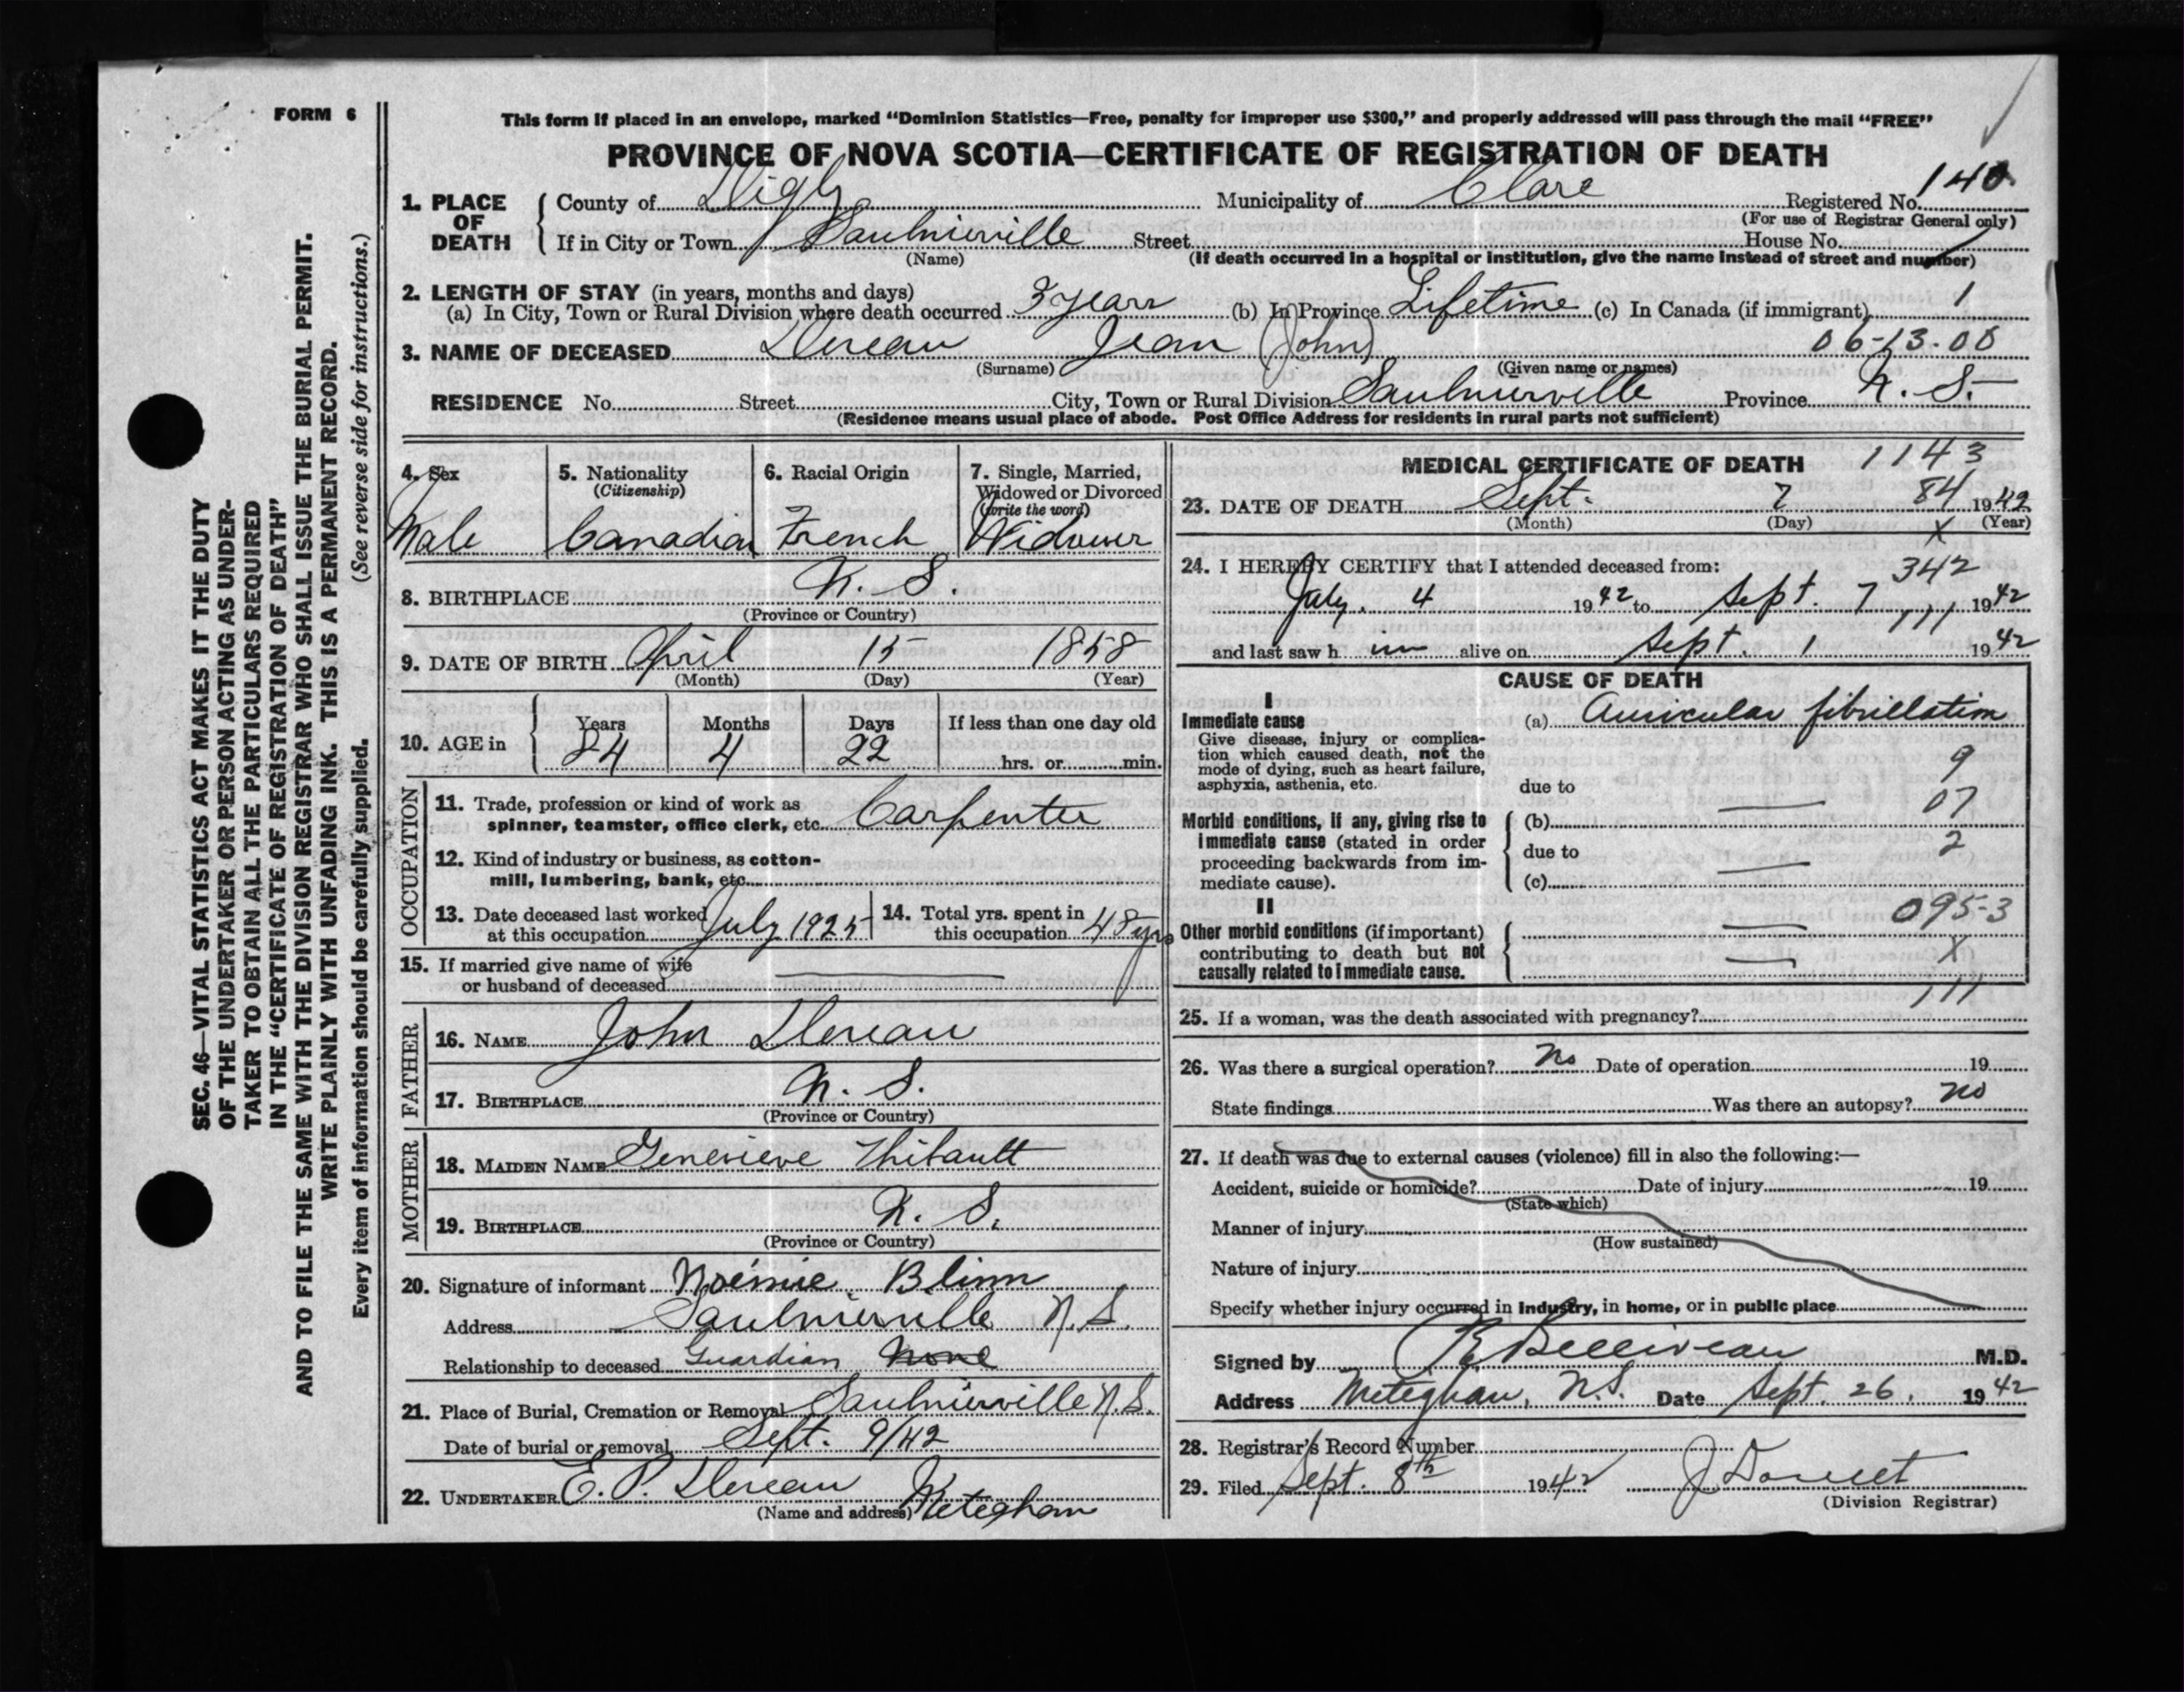 FORM 6
This form if placed in an envelope, marked “Dominion Statistics—Free, penalty for improper use $300,” and properly addressed will pass through the mail “FREE”
PROVINCE OF NOVA SCOTIA—CERTIFICATE OF REGISTRATION OF DEATH
1. PLACE OF DEATH { County of Digby Municipality of Clare Registered No. 140
(For use of Registrar General only)
If in City or Town Saulnierville Street House No.
(Name) (If death occurred in a hospital or institution, give the name instead of street and number)
2. LENGTH OF STAY (in years, months and days)
(a) In City, Town or Rural Division where death occurred 3 years (b) In Province Lifetime (c) In Canada (if immigrant) 1
3. NAME OF DECEASED Jean (John) 06-13-00
(Surname) (Given name or names)
RESIDENCE No. Street City, Town or Rural Division Saulnierville Province N. S.
(Residence means usual place of abode. Post Office Address for residents in rural parts not sufficient)
4. Sex 5. Nationality (Citizenship) 6. Racial Origin 7. Single, Married, Widowed or Divorced (write the word)
Male Canadian French Widower
8. BIRTHPLACE N. S.
(Province or Country)
9. DATE OF BIRTH April 15 1858
(Month) (Day) (Year)
10. AGE in { Years Months Days If less than one day old
84 4 22 hrs. or min.
OCCUPATION
11. Trade, profession or kind of work as
spinner, teamster, office clerk, etc. Carpenter
12. Kind of industry or business, as cotton-
mill, lumbering, bank, etc.
13. Date deceased last worked at this occupation July 1925 14. Total yrs. spent in this occupation 48 yrs
15. If married give name of wife
or husband of deceased
FATHER
16. NAME John
17. BIRTHPLACE N. S.
(Province or Country)
MOTHER
18. MAIDEN NAME Genevieve Thibault
19. BIRTHPLACE N. S.
(Province or Country)
20. Signature of informant Noémie Blinn
Address Saulnierville N.S.
Relationship to deceased Guardian None
21. Place of Burial, Cremation or Removal Saulnierville N.S.
Date of burial or removal Sept. 9/42
22. UNDERTAKER E. P. Meteghan
(Name and address)
MEDICAL CERTIFICATE OF DEATH 1143
23. DATE OF DEATH Sept. 7 84 1942
(Month) (Day) X (Year)
24. I HEREBY CERTIFY that I attended deceased from: 342
July. 4 1942 to Sept. 7 1942
111
and last saw h im alive on Sept. 1 1942
CAUSE OF DEATH
I
Immediate cause (a) Auricular fibrillation
Give disease, injury or complica-
tion which caused death, not the
mode of dying, such as heart failure,
asphyxia, asthenia, etc. due to
9
07
Morbid conditions, if any, giving rise to (b)
immediate cause (stated in order due to 2
proceeding backwards from im-
mediate cause). (c)
II 095-3
Other morbid conditions (if important)
contributing to death but not X
causally related to immediate cause.
111
25. If a woman, was the death associated with pregnancy?
26. Was there a surgical operation? No Date of operation 19
State findings Was there an autopsy? no
27. If death was due to external causes (violence) fill in also the following:—
Accident, suicide or homicide? Date of injury 19
(State which)
Manner of injury
(How sustained)
Nature of injury
Specify whether injury occurred in industry, in home, or in public place
Signed by Belliveau M.D.
Address Meteghan, N.S. Date Sept. 26, 1942
28. Registrar's Record Number
29. Filed Sept. 8th 1942 J Doucet
(Division Registrar)
SEC. 46—VITAL STATISTICS ACT MAKES IT THE DUTY
OF THE UNDERTAKER OR PERSON ACTING AS UNDER-
TAKER TO OBTAIN ALL THE PARTICULARS REQUIRED
IN THE “CERTIFICATE OF REGISTRATION OF DEATH”
AND TO FILE THE SAME WITH THE DIVISION REGISTRAR WHO SHALL ISSUE THE BURIAL PERMIT.
WRITE PLAINLY WITH UNFADING INK. THIS IS A PERMANENT RECORD.
Every item of information should be carefully supplied. (See reverse side for instructions.)